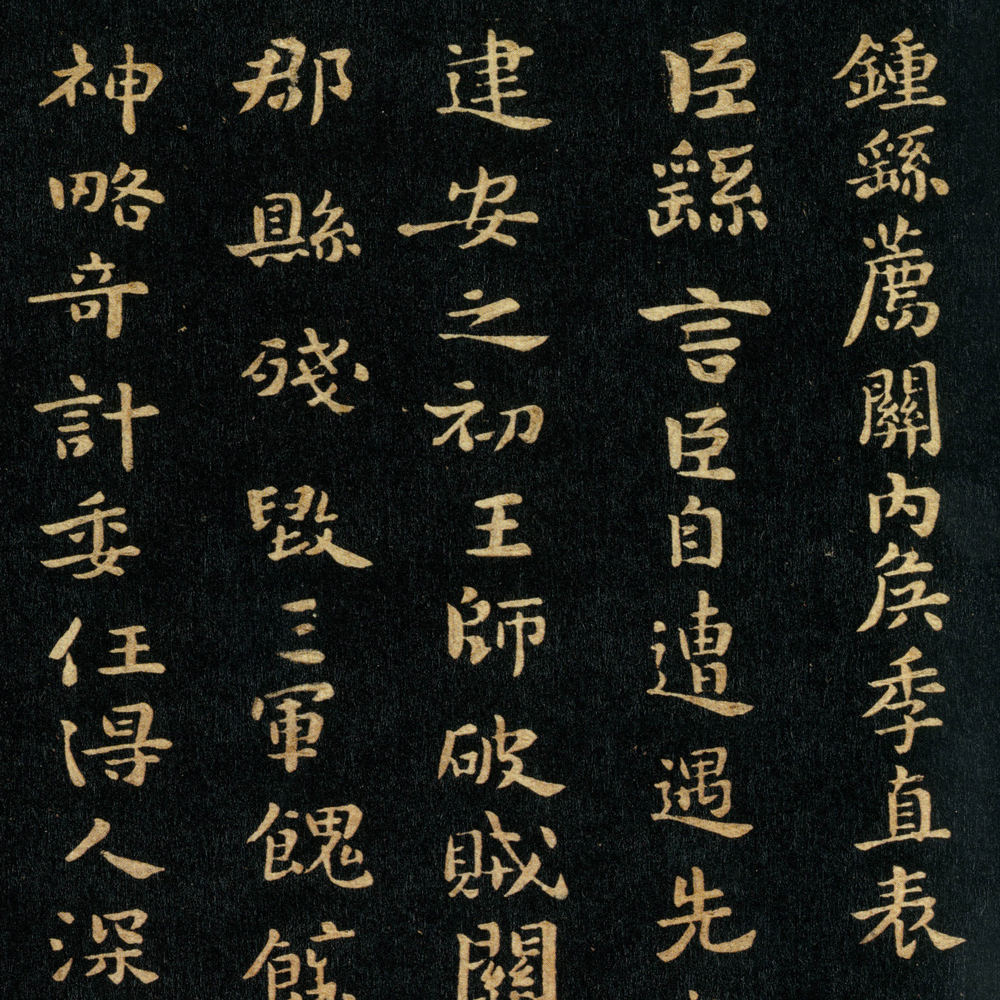 鍾繇薦關內侯季直表
臣繇言臣自遭遇先
建安之初王師破賊關
郡縣殘毀三軍餽饟
神略奇計委任得人深